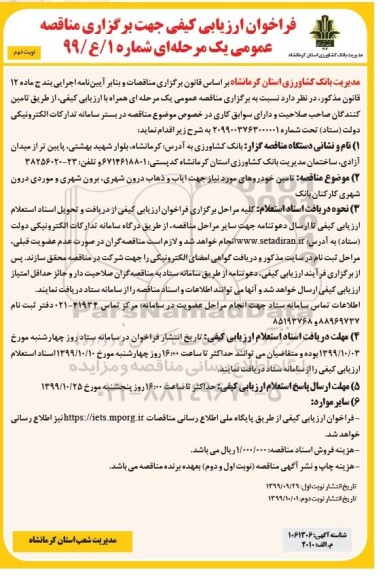 فراخوان ارزیابی کیفی جهت برگزاری مناقصه
عمومی یک مرحله‌ای شماره ۱/ع/۹۹
نوبت دوم
مدیریت بانک کشاورزی استان کرمانشاه
مدیریت بانک کشاورزی استان کرمانشاه بر اساس قانون برگزاری مناقصات و بنابر آیین‌نامه اجرایی بند ج ماده ۱۲
قانون مذکور، در نظر دارد نسبت به برگزاری مناقصه عمومی یک مرحله ای همراه با ارزیابی کیفی، از طریق تامین
کنندگان صاحب صلاحیت و دارای سوابق کاری در خصوص موضوع مناقصه در بستر سامانه تدارکات الکترونیکی
دولت (ستاد) تحت شماره ۲۰۹۹۰۰۳۷۶۳۰۰۰۰۰۱ به شرح زیر اقدام نماید:
۱) نام و نشانی دستگاه مناقصه گزار: بانک کشاورزی به آدرس: کرمانشاه، بلوار شهید بهشتی، پایین تر از میدان
آزادی، ساختمان مدیریت بانک کشاورزی استان کرمانشاه کدپستی: ۶۷۱۴۶۱۸۸۰۱ و تلفن: ۲۳-۳۸۲۵۶۰۲۰
۲) موضوع مناقصه: تامین خودروهای مورد نیاز جهت ایاب و ذهاب درون شهری، برون شهری و موردی درون
شهری کارکنان بانک
۳) نحوه دریافت اسناد استعلام: کلیه مراحل برگزاری فراخوان ارزیابی کیفی از دریافت و تحویل اسناد استعلام
ارزیابی کیفی تا ارسال دعوتنامه جهت سایر مراحل مناقصه، از طریق درگاه سامانه تدارکات الکترونیکی دولت
(ستاد) به آدرس: www.setadiran.ir انجام خواهد شد و لازم است مناقصه‌گران در صورت عدم عضویت قبلی،
مراحل ثبت نام در سایت مذکور و دریافت گواهی امضای الکترونیکی را جهت شرکت در مناقصه محقق سازند. پس
از برگزاری فرآیند ارزیابی کیفی، دعوتنامه از طریق سامانه ستاد به مناقصه‌گران صلاحیت دار و حائز حداقل امتیاز
ارزیابی کیفی ارسال خواهد شد و آنها می توانند اطلاعات و اسناد مناقصه را از سامانه ستاد دریافت نمایند.
اطلاعات تماس سامانه ستاد جهت انجام مراحل عضویت در سامانه: مرکز تماس ۴۱۹۳۴-۰۲۱ دفتر ثبت نام
۸۸۹۶۹۷۳۷ و ۸۵۱۹۳۷۶۸
۴) مهلت دریافت اسناد استعلام ارزیابی کیفی: تاریخ انتشار فراخوان در سامانه ستاد روز چهارشنبه مورخ
۱۳۹۹/۱۰/۰۳ بوده و متقاضیان می توانند حداکثر تا ساعت ۱۶:۰۰ روز چهارشنبه مورخ ۱۳۹۹/۱۰/۱۰ اسناد استعلام
ارزیابی کیفی را از سامانه ستاد دریافت نمایند.
۵) مهلت ارسال پاسخ استعلام ارزیابی کیفی: حداکثر تا ساعت ۱۶:۰۰ روز پنجشنبه مورخ ۱۳۹۹/۱۰/۲۵
۶) سایر موارد:
- فراخوان ارزیابی کیفی از طریق پایگاه ملی اطلاع رسانی مناقصات https://iets.mporg.ir نیز اطلاع رسانی
خواهد شد.
- هزینه فروش اسناد مناقصه: ۱/۰۰۰/۰۰۰ ریال می باشد.
- هزینه چاپ و نشر آگهی مناقصه (نوبت اول و دوم) بعهده برنده مناقصه می باشد.
تاریخ انتشار نوبت اول: ۱۳۹۹/۰۹/۲۹
تاریخ انتشار نوبت دوم: ۱۳۹۹/۱۰/۰۱
شناسه آگهی: ۱۰۶۱۳۰۶
م.الف: ۲۰۱۰
مدیریت شعب استان کرمانشاه